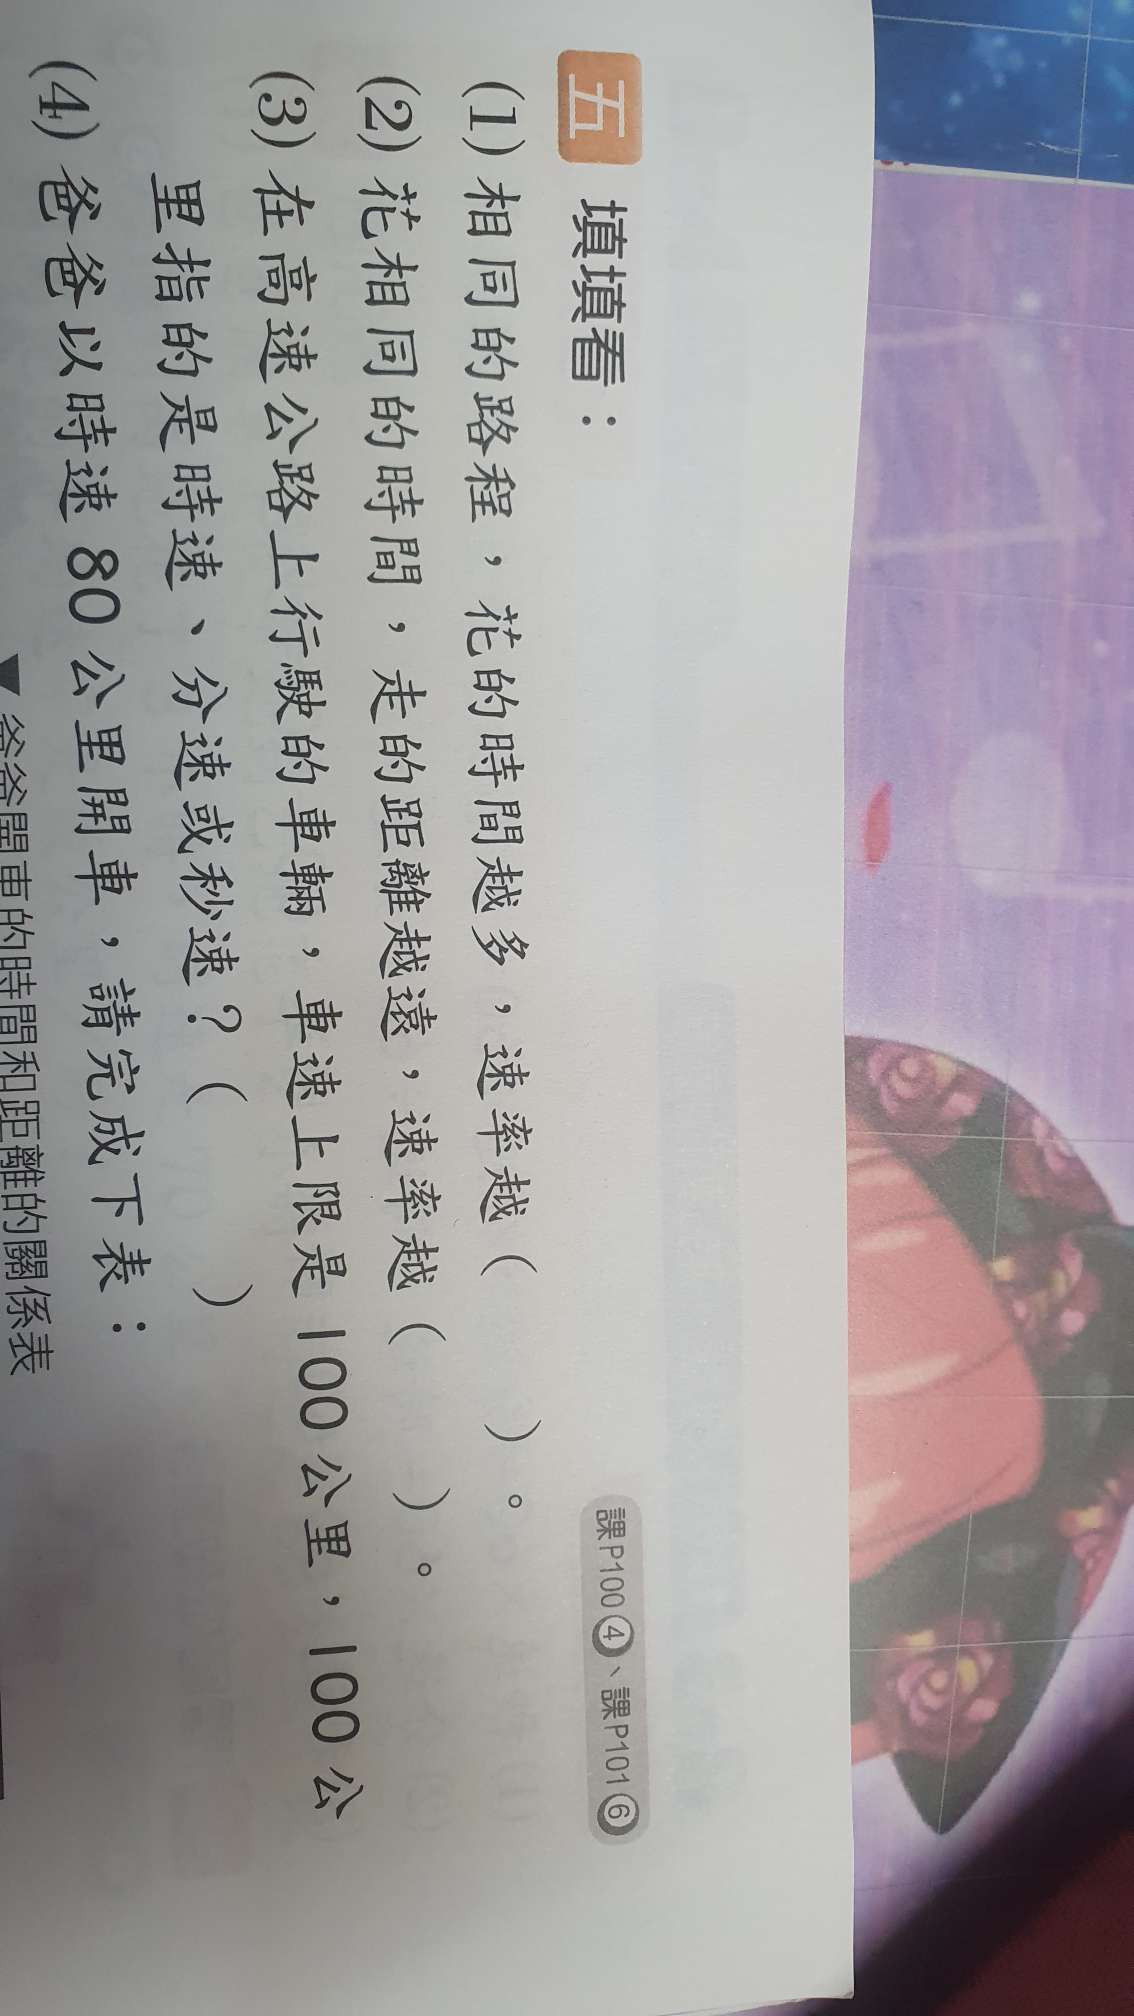 五 填填看： 課P100④、課P101⑥
(1) 相同的路程，花的時間越多，速率越（ ）。
(2) 花相同的時間，走的距離越遠，速率越（ ）。
(3) 在高速公路上行駛的車輛，車速上限是100公里，100公
里指的是時速、分速或秒速？（ ）
(4) 爸爸以時速80公里開車，請完成下表：
▼爸爸開車的時間和距離的關係表